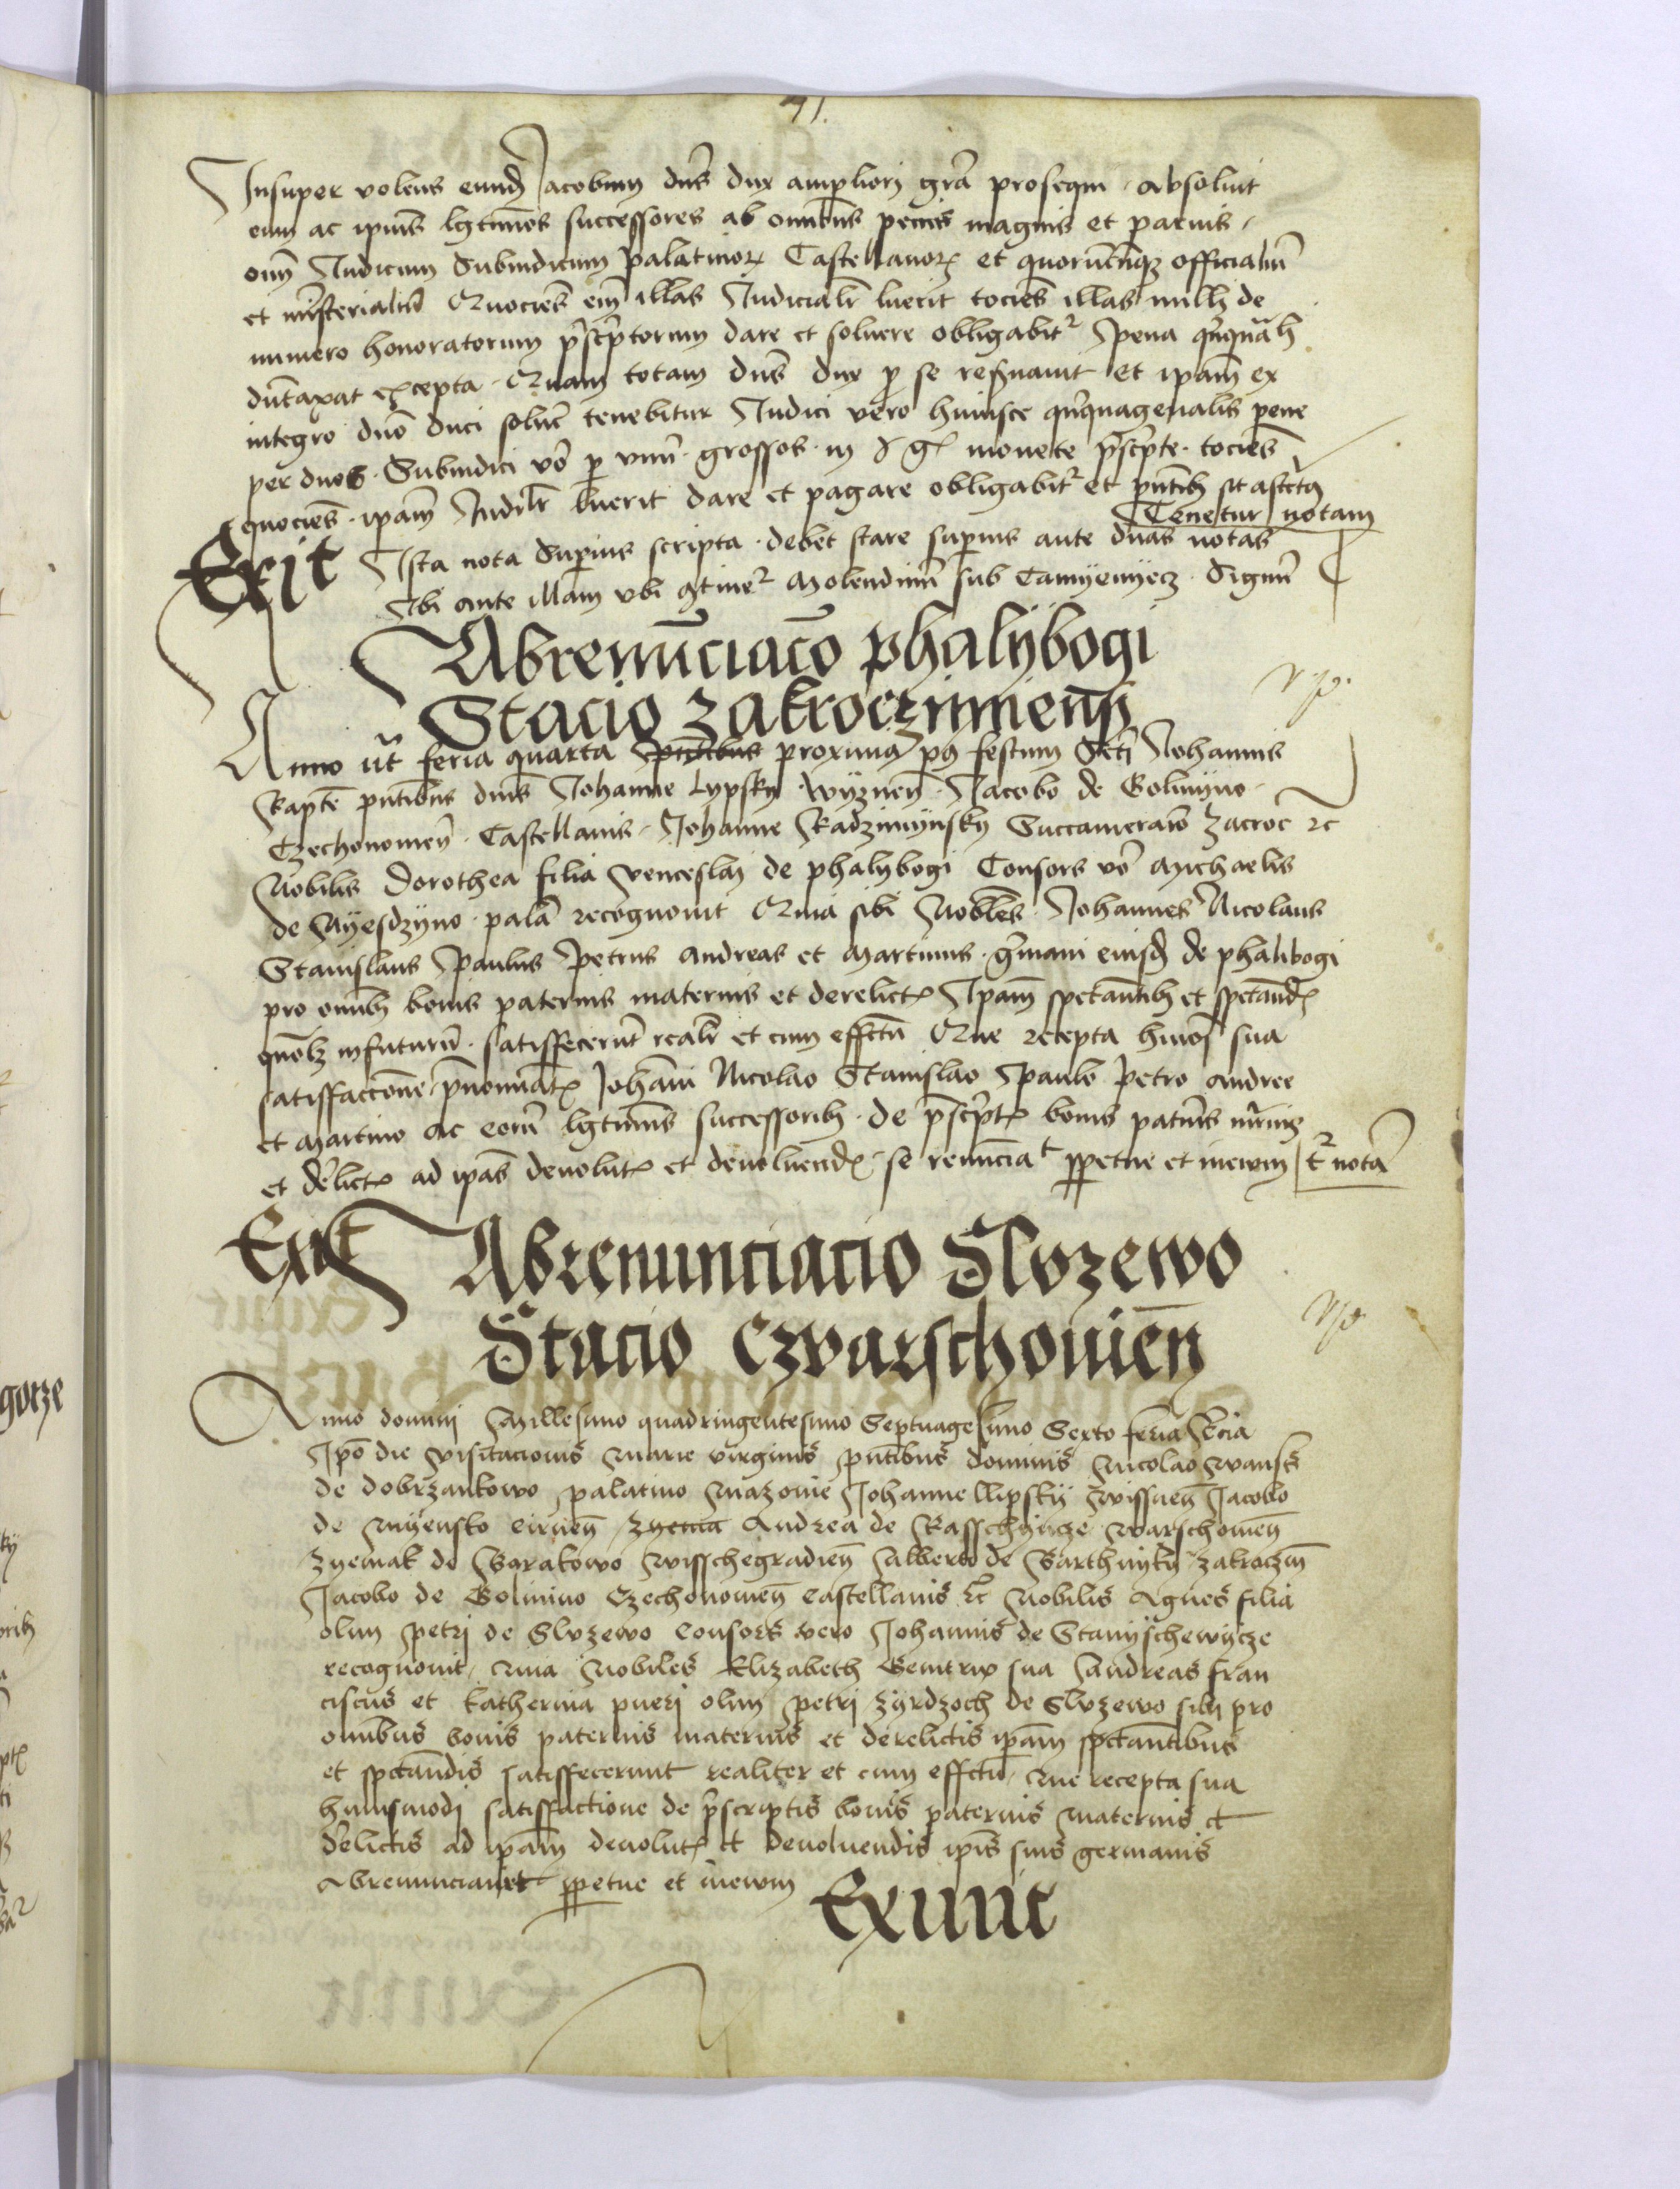 71.
Insuper volens eund Jacobum dns dux ampliori gra prosequi absoluit
eum ac ipius lgtimos successores ab omibus penis magnis et paruis
oim Judicum Subiudicum palatinor Castellanor et quorucunqz officialiu
et misterialiu Quociens eni illas Judicialr luerit tociens illas mill de
numero honoratorum pscptorum dare et soluere obligabit pena
duntaxat excepta Quam totam dns dux p se resuauit et ipam ex
integro duo duci solue tenebitur Judici vero huiusce qnquagenalis pene
per duos Subiudici vo p vnu grossos in g monete pscpte tociens
quociens ipam Judilr luerit dare et pagare obligabit et pntib
Tenetur notam
Exit Ista nota Superius scripta debet stare superius ante duas notas
Ibi ante illam vbi gtine Molendinu sub Camyenyecz Signu
Abrenunciaco phalybogi
Stacio zakroczimiens
Anno ut feria quarta pntibus proxima ps festum Scti Johannis
Bapte pntibus dnis Johanne Lypsky wyznen Jacobo de Golmyno
Czechonomen Castellanis Johanne Radzimynsky Succamerario zacroc rc
Nobilis Dorothea filia venceslai de phalybogi Consors vo Michaelis
de Myesdzyno pala recognouit Quia sibi Nobles Johannes Nicolaus
Stanislaus Paulus Petrus Andreas et Martinus gmani eiusd de phalibogi
pro omib bonis paternis maternis et derelict Ipam spectantib et spectand
quolz infuturu satisffecerut realr et cum effctu Que recepta huios sua
satisffaccione pnominat Johani Nicolao Stanislao Paulo Petro Andree
et Martino ac eoru lgtimis successorib de pscpt bonis patnis mrnis
et delict ad ipas deuolut et deuoluend se renuncia t ppetue et ineuum t nota
Exit Abrenunciacio Sluzewo
Stacio Czwarschouien
Anno domini Millesimo quadringentesimo Septuagesimo Sexto feria tercia
Ipo die visitacionis Marie virginis pntibus dominis Nicolao
de dobrzankowo palatino Mazouie Johanne llipsky wissnen Jacobo
de Myensko cirnen zyema Andrea de Rasschyncze warschouien
zyemak de Gorakowo wisschegradien Alberto de Barthnyky zakroczim
Jacobo de Golmino Czechonomen Castellanis rc Nobilis Agnes filia
olim petri de Sluzewo Consors vero Johannis de Stanyschewycze
recognouit Quia Nobiles Elizabeth Genitrix sua Andreas fran
ciscus et katherina pueri olim petri zyrdzoch de Sluzewo sibi pro
omibus bonis paternis maternis et derelictis ipam spctantibus
et spctandis satisffecerunt realiter et cum effctu Que recepta sua
huiusmodi satisffactione de pscriptis bonis paternis maternis et
delictis ad ipam deuolut et deuoluendis ipis suis germanis
Abrenunciauit ppetue et ineuum Exiuit